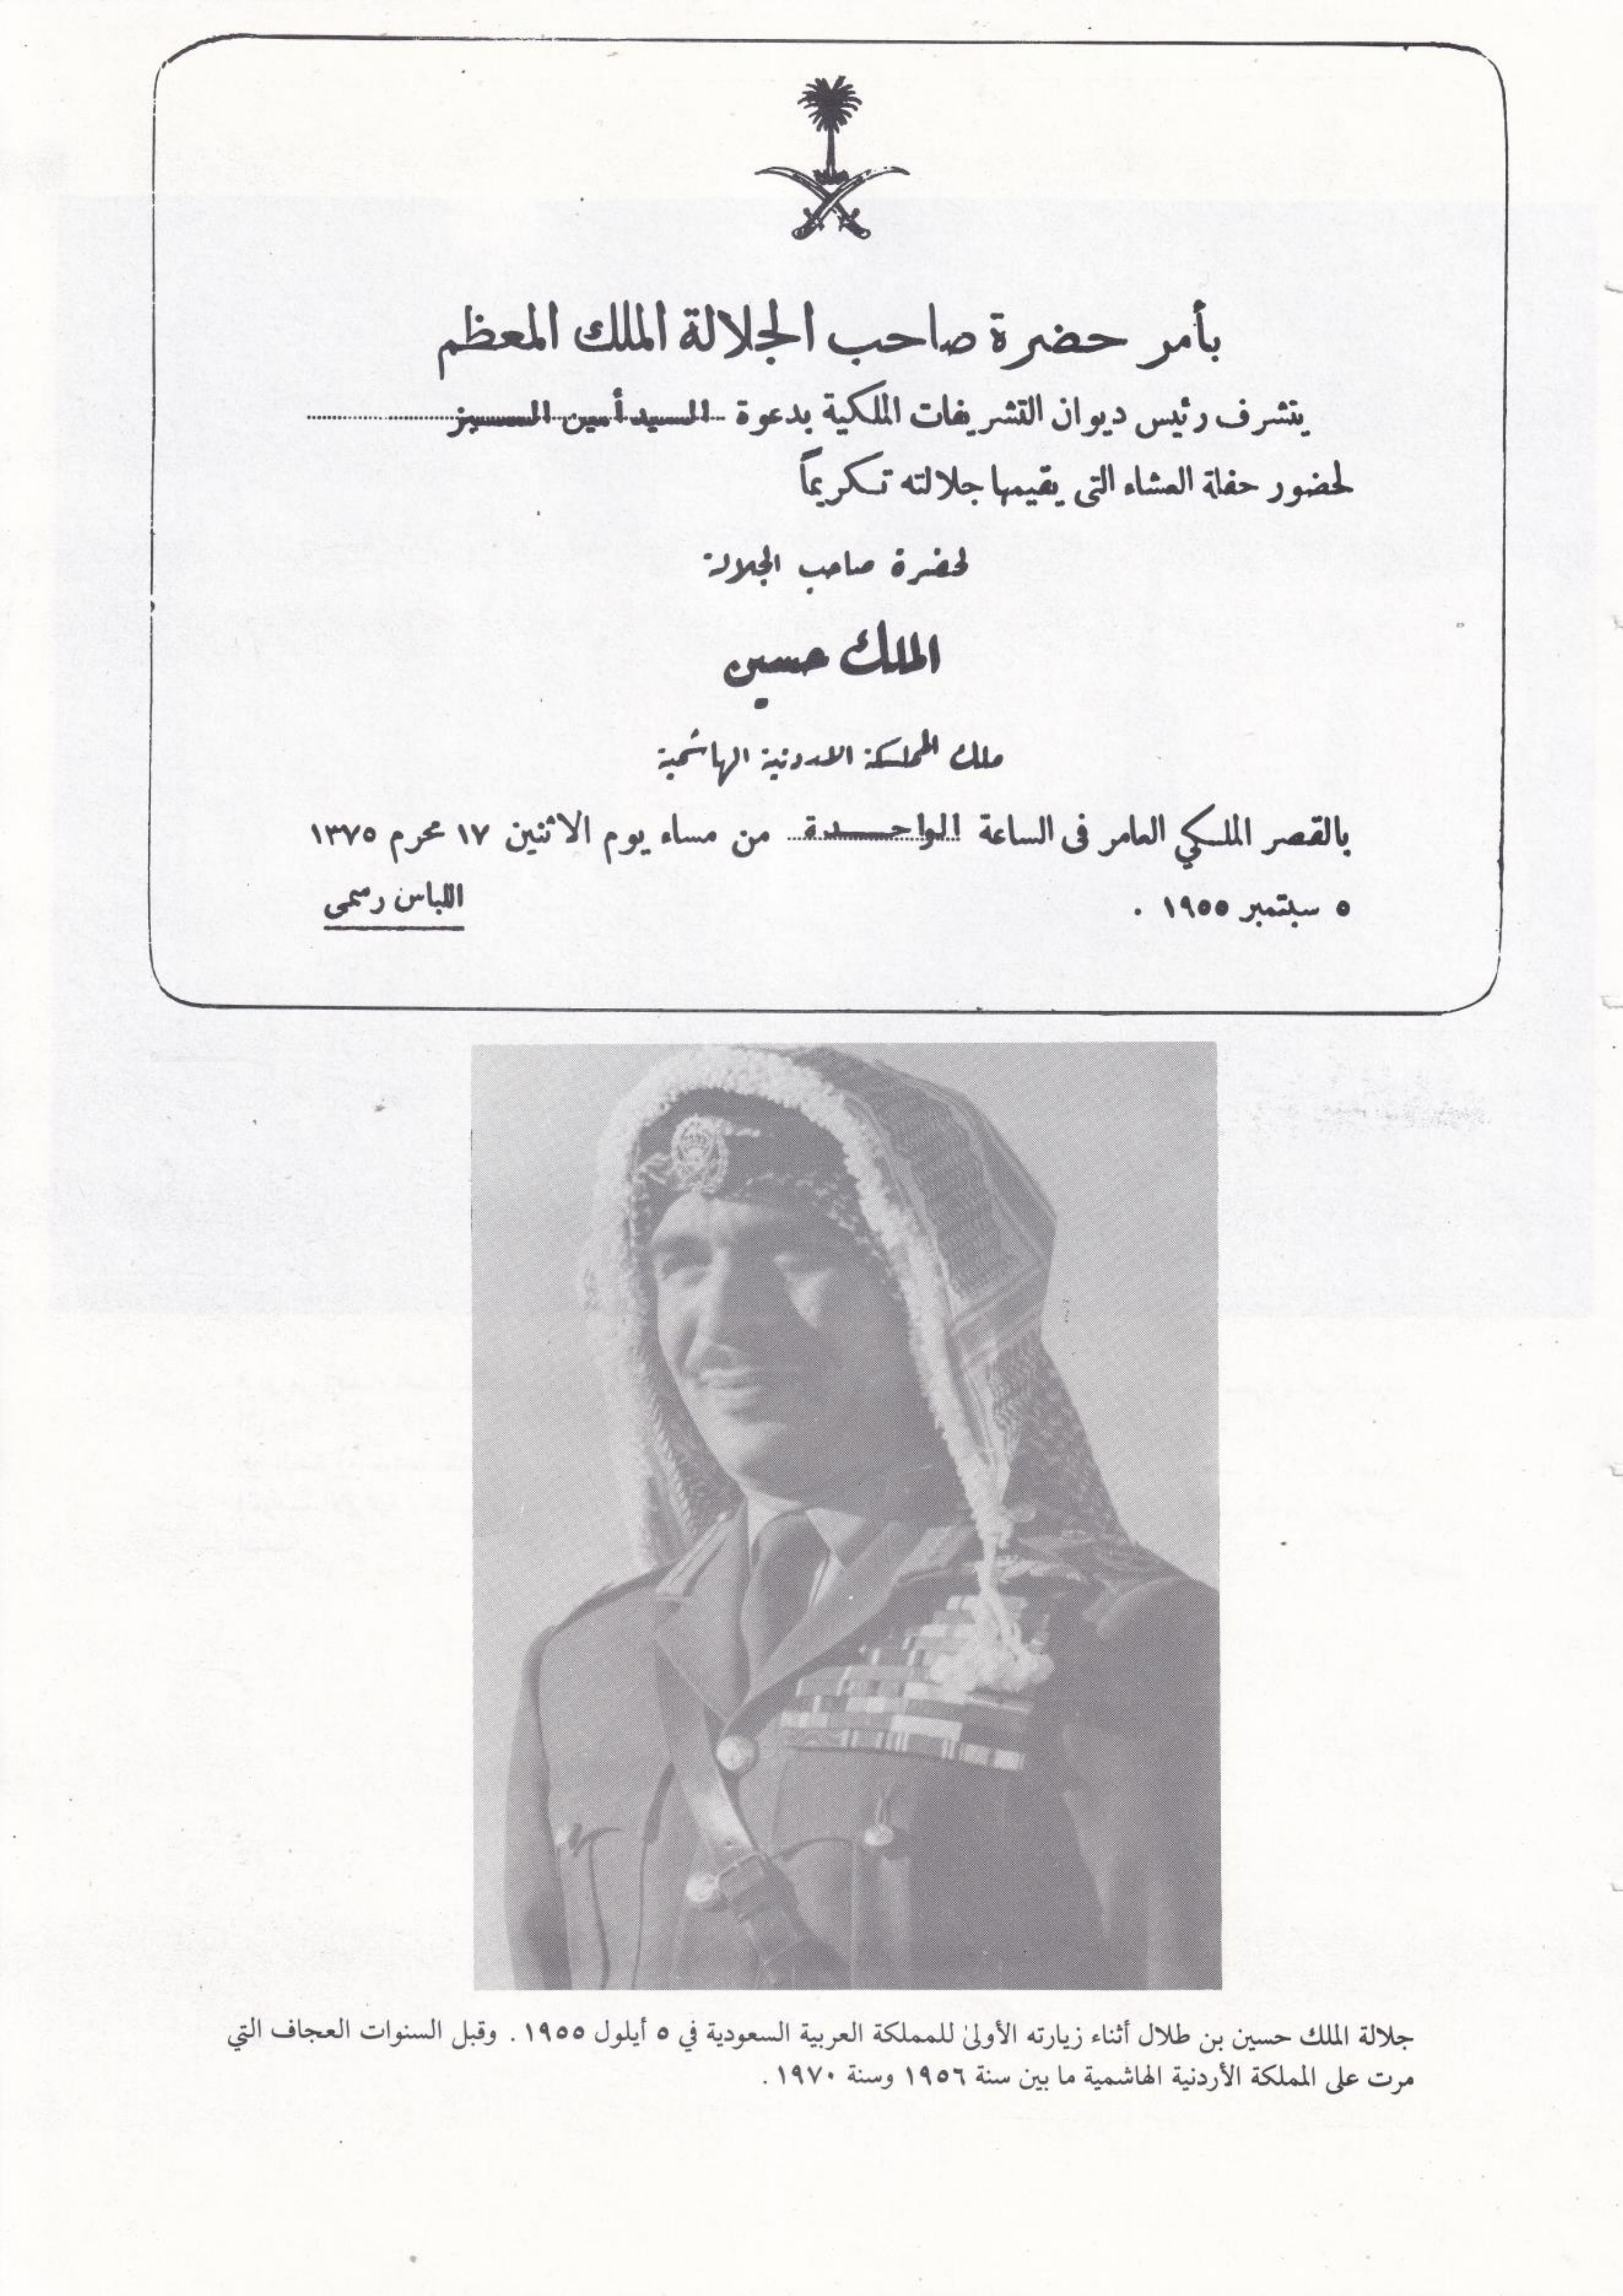 بأمر حضرة صاحب الجلالة الملك المعظم
يتشرف رئيس ديوان التشريفات الملكية بدعوة السيد أمين المميز
لحضور حفلة العشاء التى يقيمها جلالته تكريماً
لحضرة صاحب الجلالة
الملك حسين
ملك المملكة الاردنية الهاشمية
بالقصر الملكي العامر فى الساعة الواحدة من مساء يوم الاثنين ١٧ محرم ١٣٧٥
٥ سبتمبر ١٩٥٥ .
اللباس رسمى
جلالة الملك حسين بن طلال أثناء زيارته الأولىٰ للمملكة العربية السعودية في ٥ أيلول ١٩٥٥ . وقبل السنوات العجاف التي
مرت على المملكة الأردنية الهاشمية ما بين سنة ١٩٥٦ وسنة ١٩٧٠ .